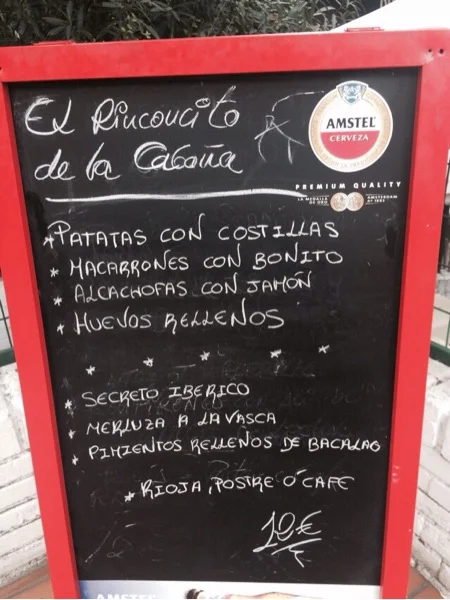 El Rinconcito
de la Cabaña
AMSTEL
CERVEZA
PREMIUM QUALITY
LA MEDALLA
DE ORO
AMSTERDAM
*PATATAS CON COSTILLAS
* MACARRONES CON BONITO
* ALCACHOFAS CON JAMÓN
* HUEVOS RELLENOS
* * * * *
* SECRETO IBERICO
* MERLUZA A LA VASCA
* PIMIENTOS RELLENOS DE BACALAO
* RIOJA, POSTRE Ó CAFE
12€
AMSTEL